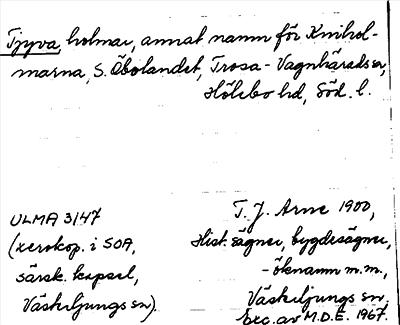 Tjyva, holmar, annat namn för Knihol-
marna, S. Öbolandet, Trosa-Vagnhärads sn,
Hölebo hd, Söd. l.
ULMA 31:47
(xerokop. i SOA,
särsk. kapsel,
Västerljungs sn).
T. J. Arne 1900,
Hist. sägner, bygdesägner,
-öknamn m.m.,
Västerljungs sn.
Exc. av M.D.E. 1967.